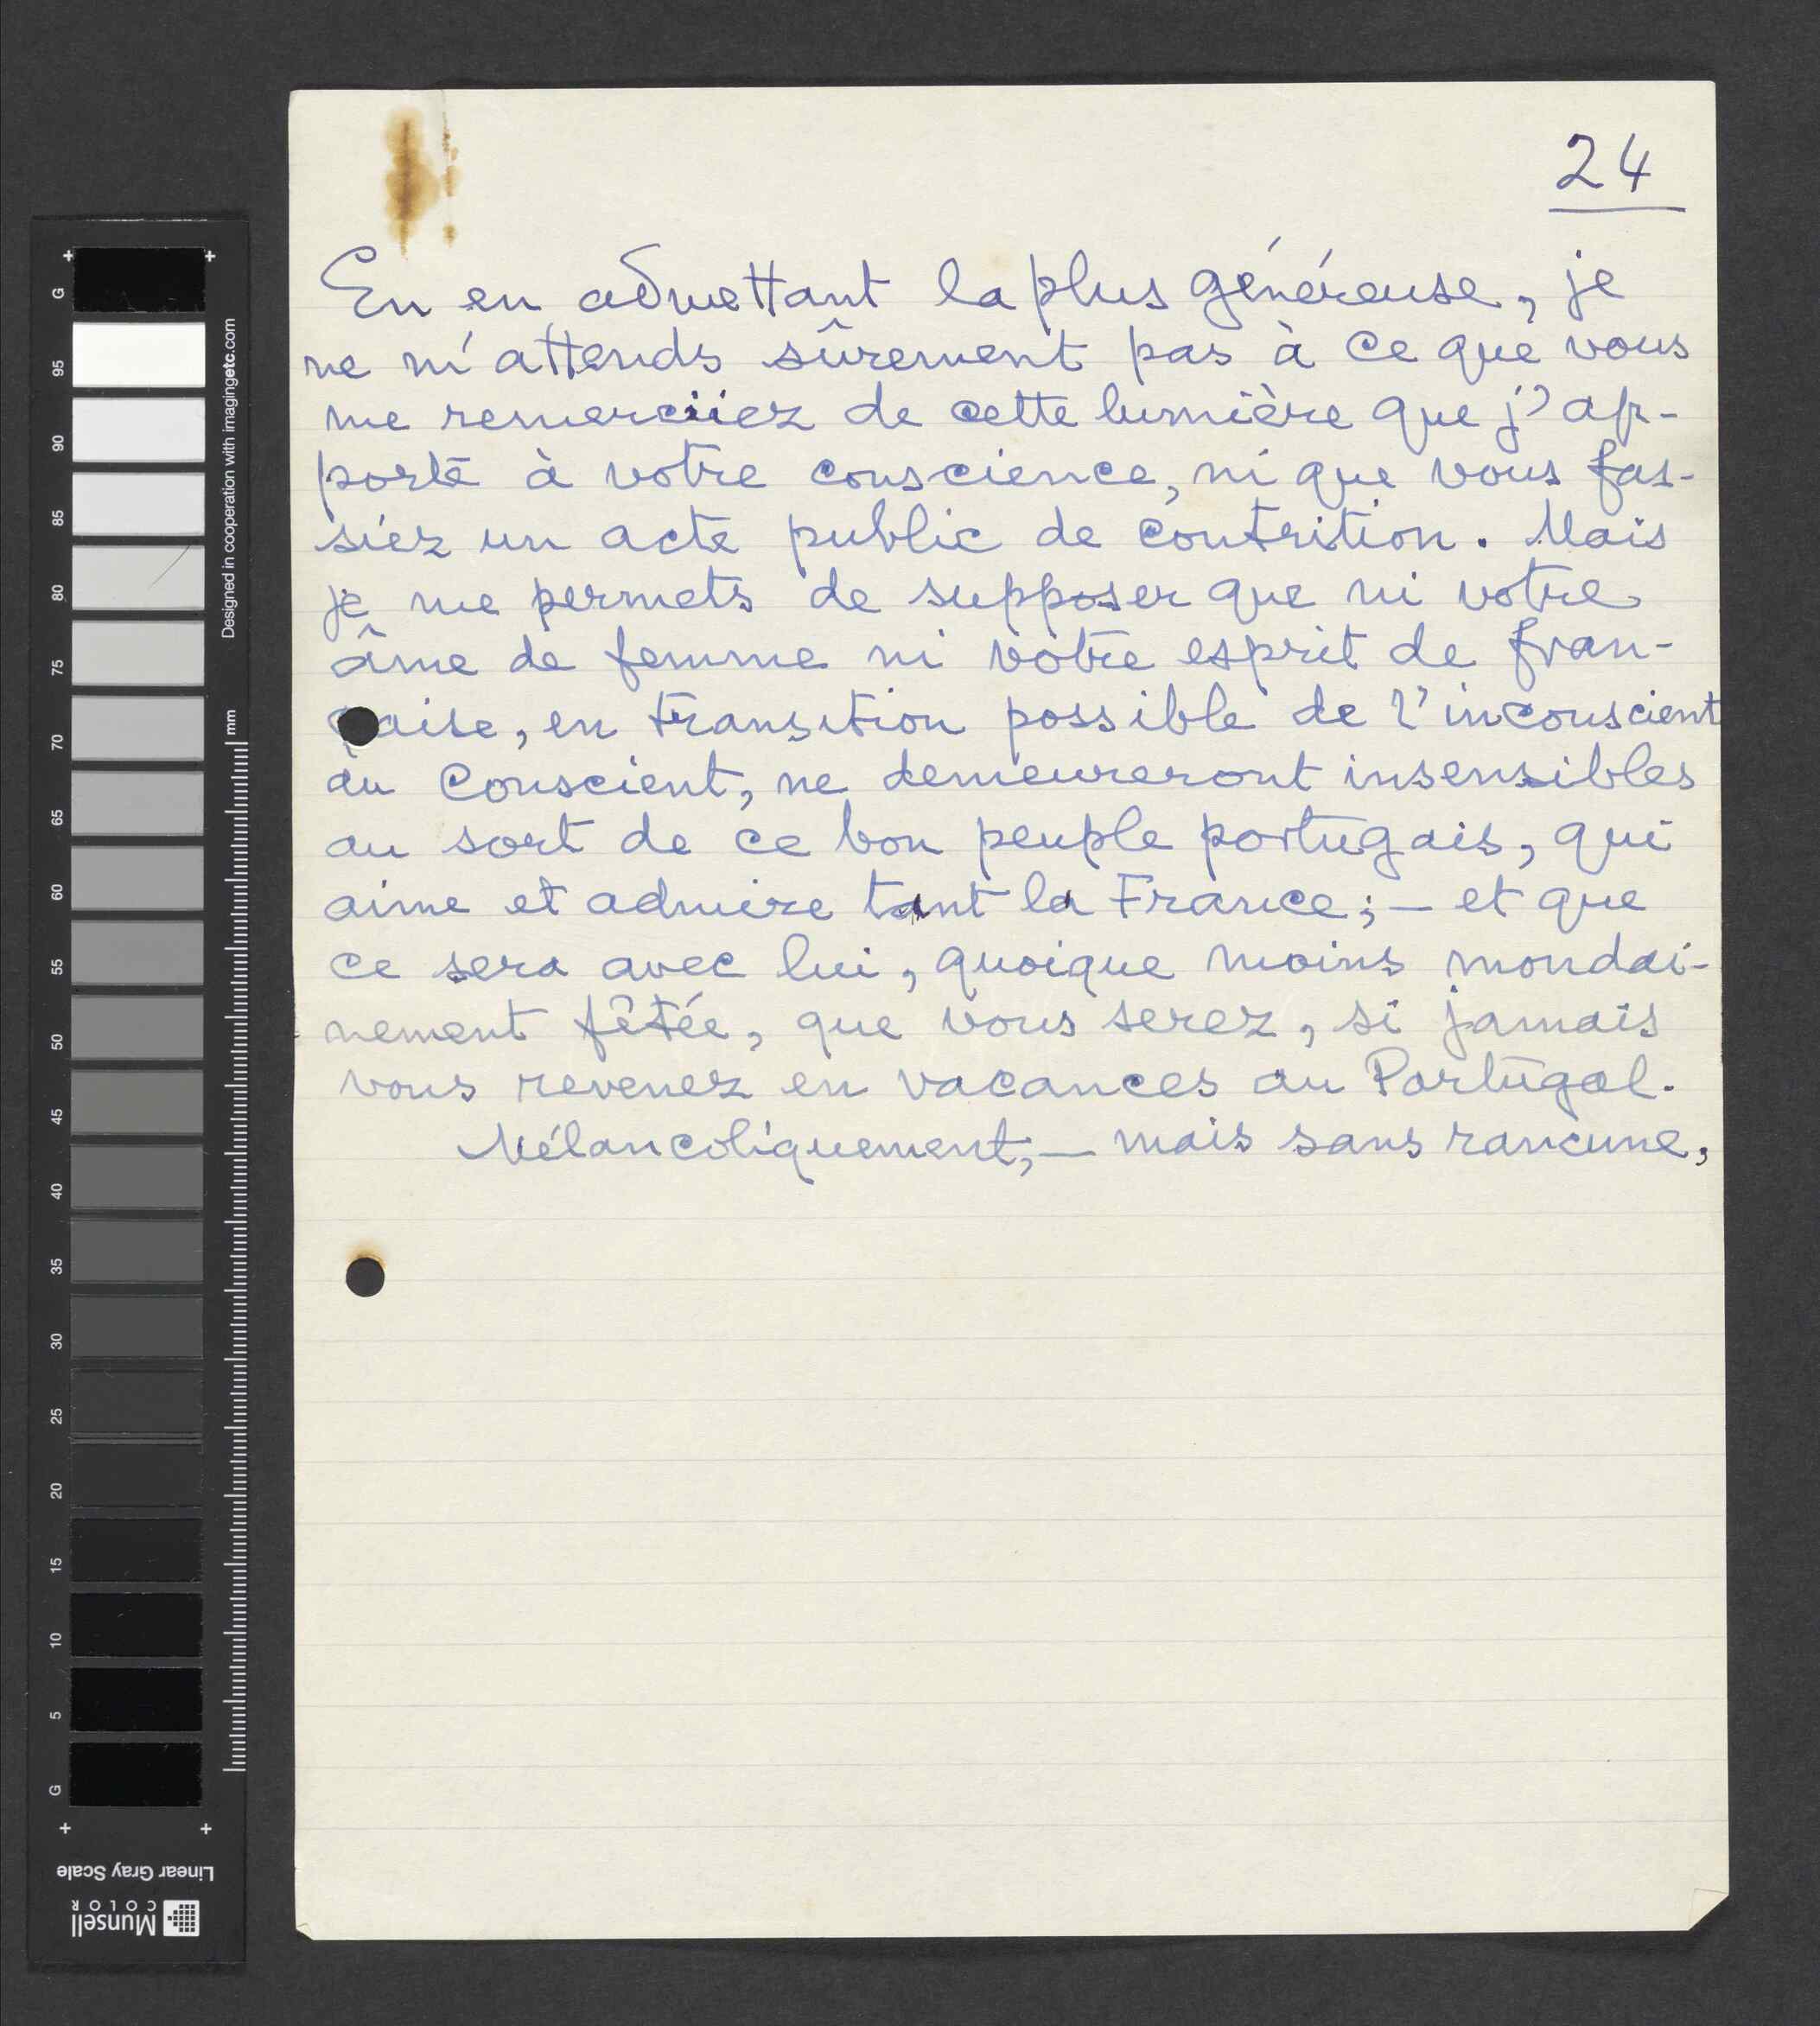 24
En en admettant la plus généreuse, je
ne m'attends sûrement pas à ce que vous
me remerciiez de cette lumière que j'ap-
porte à votre conscience, ni que vous fas-
siez un acte public de contrition. Mais
je me permets de supposer que ni votre
âme de femme ni votre esprit de fran-
çaise, en transition possible de l'inconscient
au conscient, ne demeureront insensibles
au sort de ce bon peuple portugais, qui
aime et admire tant la France; — et que
ce sera avec lui, quoique moins mondai-
nement fêtée, que vous serez, si jamais
vous revenez en vacances au Portugal.
Mélancoliquement, — mais sans rancune,
G 95 90 85 80 75 70 65 60 55 50 45 40 35 30 25 20 15 10 5 G
Designed in cooperation with imagingetc.com
mm
Linear Gray Scale
Munsell
COLOR